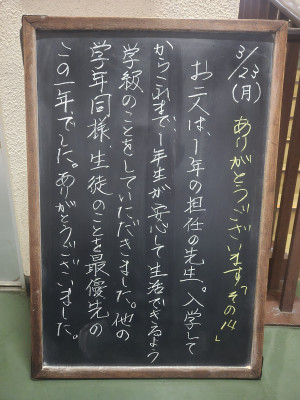 3/23(月)
ありがとうございます「その川」
お二人は、1年の担任の先生。入学して
からこれまで、1年生が安心して生活できるよう
学級のことをしていただきました。他の
学年同様、生徒のことを最優先の
この一年でした。ありがとうございました。